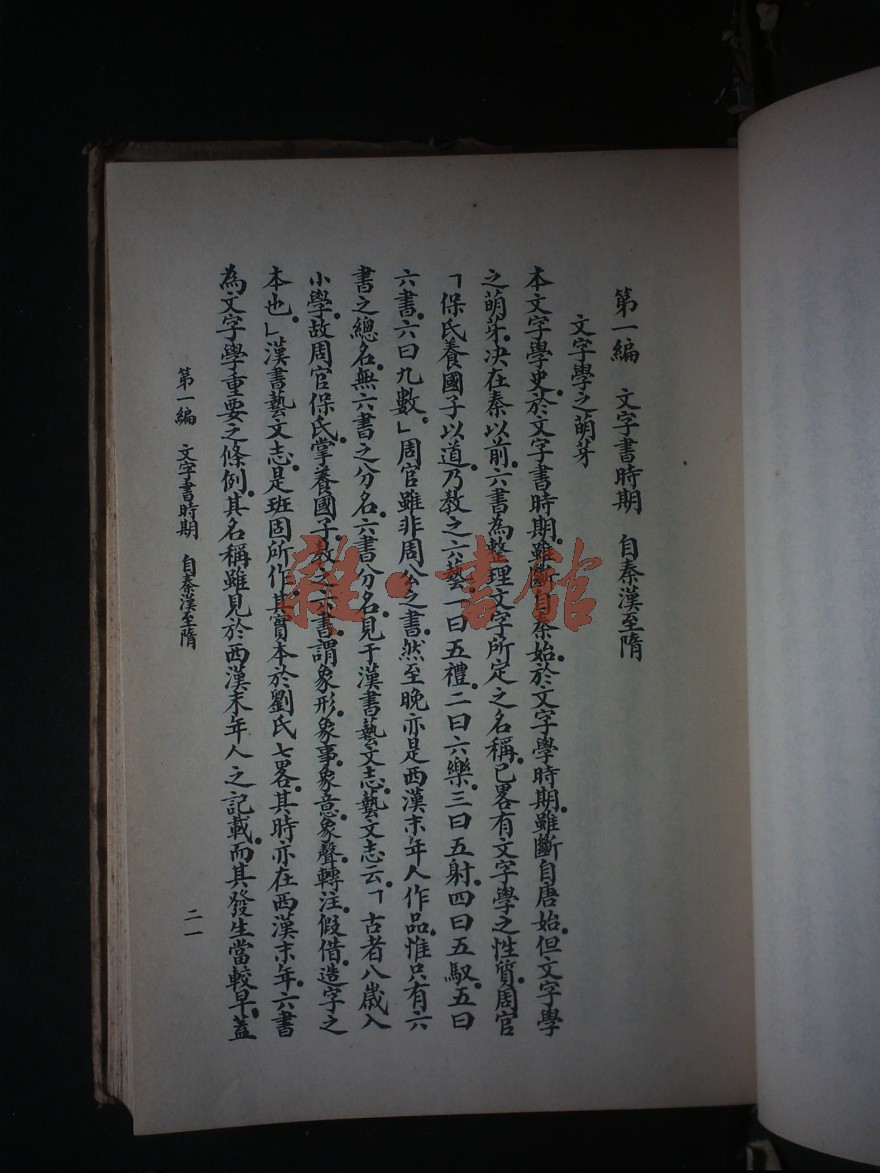 第一編　文字書時期　自秦漢至隋
文字學之萌芽
本文字學史。於文字書時期。雖斷自秦始。於文字學時期。雖斷自唐始。但文字學
之萌芽。決在秦以前。六書為整理文字所定之名稱。已畧有文字學之性質。周官
「保氏養國子以道。乃教之六藝。一曰五禮。二曰六樂。三曰五射。四曰五馭。五曰
六書。六曰九數。」周官雖非周公之書。然至晚亦是西漢末年人作品。惟只有六
書之總名。無六書之分名。六書分名。見于漢書藝文志。藝文志云。「古者八歲入
小學。故周官保氏。掌養國子。教之六書。謂象形。象事。象意。象聲。轉注。假借。造字之
本也。」漢書藝文志。是班固所作。其實本於劉氏七畧。其時亦在西漢末年。六書
為文字學重要之條例。其名稱雖見於西漢末年人之記載。而其發生當較早。蓋
第一編　文字書時期　自秦漢至隋
二一
雜·書館